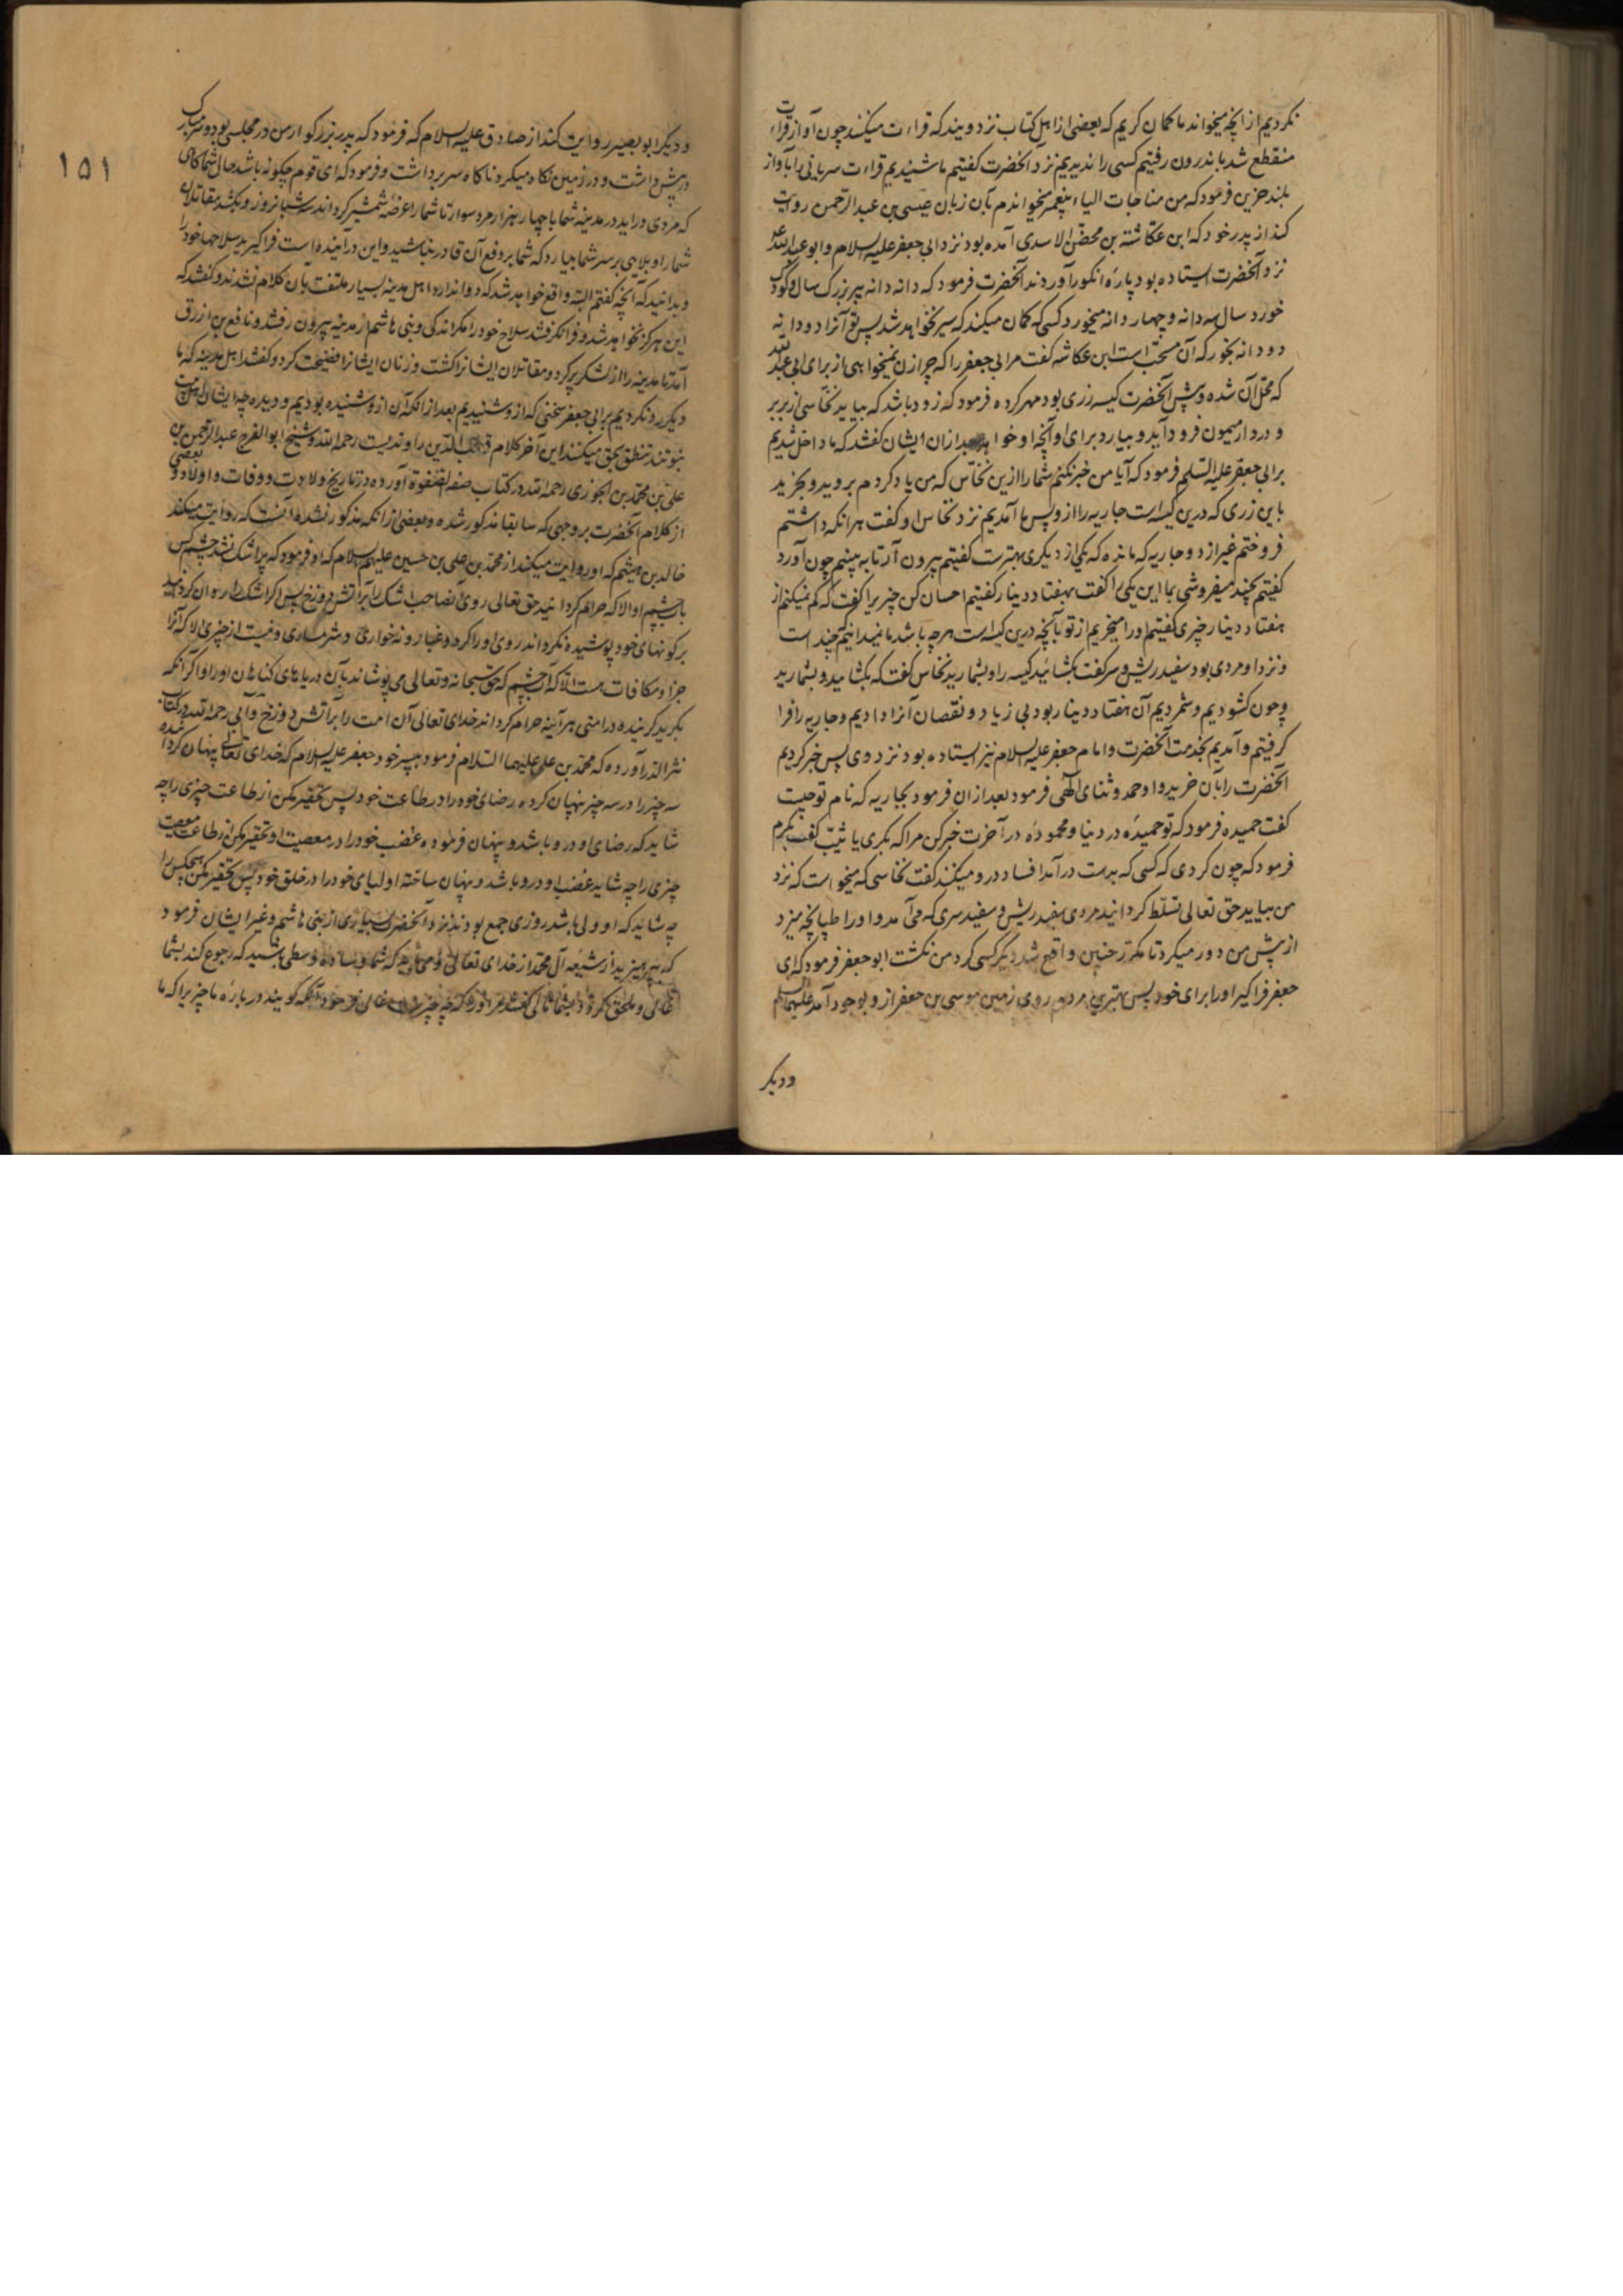 نکردیم از آنچه میخواند ما گمان کردیم که بعضی از اهل کتاب نزد ویند که قراءت میکنند چون آواز قراءت
منقطع شد باندرون رفتیم کسی را ندیدیم نزد آنحضرت گفتیم ما شنیدیم قراءت سریانی را بآواز
بلند حزین فرمود که من مناجات الیاء پیغمبر میخواندم بآن زبان عیسی بن عبدالرحمن روایت
کند از پدر خود که ابن عکاشة بن محصن الاسدی آمده بود نزد ابی جعفر علیه السلام و ابو عبدالله
نزد آنحضرت ایستاده بود پارهٔ انگور آوردند آنحضرت فرمود که دانه دانه پیر بزرگ سال و کودک
خورد سال سه دانه و چهار دانه میخورد کسی که گمان میکند که سیر نخواهد شد پس تو آنرا دو دانه
دو دانه بخور که آن مستحب است ابن عکاشه گفت مر ابی جعفر را که چرا زن نمیخواهی از برای ابی عبدالله
که محل آن شده و پیش آنحضرت کیسه زری بود مهر کرده فرمود که زود باشد که بیاید نخاسی از بربر
و در دار میمون فرود آید و بیارد برای او آنچه او خواهد بعد ازان ایشان گفتند که ما داخل شدیم
بر ابی جعفر علیه السلم فرمود که آیا من خبر نکنم شما را ازین نخاس که من یاد کردم بروید و بخرید
باین زری که درین کیسه است جاریه را از و پس ما آمدیم نزد نخاس او گفت هر آنکه داشتم
فروختم غیر از دو جاریه که مانده که یکی از دیگری بهتر است گفتیم بیرون آر تا به بینیم چون آورد
گفتیم بچند میفروشی بما این یکی را گفت بهفتاد دینار گفتیم احسان کن چیزیرا گفت که کم نمیکنم از
هفتاد دینار چیزی گفتیم او را میخریم از تو بآنچه درین کیسه است هر چه باشد ما نمیدانیم چند است
و نزد او مردی بود سفید ریش و سر گفت بکشائید کیسه را و بشمارید نخاس گفت که بکشایید و بشمارید
و چون کشودیم و شمردیم آن هفتاد دینار بود بی زیاد و نقصان آنرا دادیم و جاریه را فرا
گرفتیم و آمدیم بخدمت آنحضرت و امام جعفر علیه السلام نیز ایستاده بود نزد وی پس خبر کردیم
آنحضرت را بآن خرید و او حمد و ثنای الهی فرمود بعد ازان فرمود بجاریه که نام تو چیست
گفت حمیده فرمود که تو حمیدهٔ در دنیا و محمودهٔ در آخرت خبر کن مرا که بکری یا ثیّب گفت بکرم
فرمود که چون کردی که کسی که بدست در آمد افساد درو میکنند گفت نخاسی که میخواست که نزد
من بیاید حق تعالی تسلط کردانید مردی سفید ریش و سفید سری که می آمد و او را طپانچه میزد
از پیش من دور میکرد تا مکرر چنین واقع شد دیگر کسی گرد من نگشت ابو جعفر فرمود که ای
جعفر فرا گیر او را برای خود پس بهترین مردم روی زمین موسی بن جعفر ازو بوجود آمد علیهما السلم
و دیگر
۱۵۱
و دیگر ابو بصیر روایت کند از صادق علیه السلام که فرمود که پدر بزرگوار من در مجلسی بود و سر مبارک
در پیش داشت و در زمین نگاه میکرد ناگاه سر برداشت و فرمود که ای قوم چگونه باشد حال شما گاهی
که مردی در آید در مدینه شما با چهار هزار مرد سوار تا شما را عرضه شمشیر گرداند سه شبانروز و بکشد مقاتلان
شما را و بلایی بر سر شما بیارد که شما بر دفع آن قادر نباشید و این در آینده است فرا گیرید سلاحها خود را
و بدانید که آنچه گفتم البته واقع خواهد شد اهل مدینه بسیار ملتفت بآن کلام نشدند و گفتند که
این هرگز نخواهد شد و فرا نگرفتند سلاح خود را مگر اندکی و بنی هاشم از مدینه بیرون رفتند و نافع بن ازرق
آمد تا مدینه را از لشکر پر کرد و مقاتلان ایشانرا کشت و زنان ایشانرا فضیحت کرد و گفتند اهل مدینه که ما
دیگر رد نکردیم بر ابی جعفر سخنی که ازو شنیدیم بعد از آنکه آن ازو شنیده بودیم و دیده چه ایشان اهل بیت
نبوتند تنطق بحق میکنند این آخر کلام قطب الدین راوندیست رحمه الله و شیخ ابو الفرج عبدالرحمن بن
علی بن محمد بن الجوزی رحمه الله در کتاب صفة الصفوة آورده در تاریخ ولادت و وفات و اولاد و بعضی
از کلام آنحضرت بر وجهی که سابقا مذکور شده و بعضی از آنکه مذکور نشده آنست که روایت میکند
خالد بن هیثم که او روایت میکند از محمد بن علی بن حسین علیهم السلام که او فرمود که پر اشک نشد چشم کس
بآب چشم او الا که حرام گردانید حق تعالی روی آنصاحب اشک را بر آتش دوزخ پس اگر اشک روان گردد
بر گونهای خود پوشیده نگرداند روی او را گرد و غبار و نه خواری و شرمساری و نیست از چیزی الا که آنرا
جزا و مکافات هست الا که آب چشم که حق سبحانه و تعالی می پوشاند بآن دریاهای گناهان او را و اگر آنکه
بگرید گریندهٔ در امتی هر آینه حرام گرداند خدای تعالی آن امت را بر آتش دوزخ و آبی رحمه الله در کتاب
نثر الدرر آورده که محمد بن علی علیهما السلام فرمود به پسر خود جعفر علیه السلام که خدای تعالی پنهان گردانیده
سه چیز را در سه چیز پنهان کرده رضای خود را در طاعت خود پس تحقیر مکن از طاعت چیزی را چه
شاید که رضای او درو باشد و پنهان فرموده غضب خود را در معصیت او تحقیر مکن از معصیت
چیزی را چه شاید غضب او درو باشد و پنهان ساخته اولیای خود را در خلق خود پس تحقیر مکن هیچکس را
چه شاید که او ولی باشد روزی جمع بودند نزد آنحضرت بسیاری از بنی هاشم و غیر ایشان فرمود
که بپرهیزید از شیعه آل محمد از خدای تعالی و وسطی باشید که رجوع کند بشما
غالی و ملحق گردد بشما تالی گفتند مر او را که چه چیز است غالی فرمود آنکه گویند در بارهٔ ما چیزیرا که ما